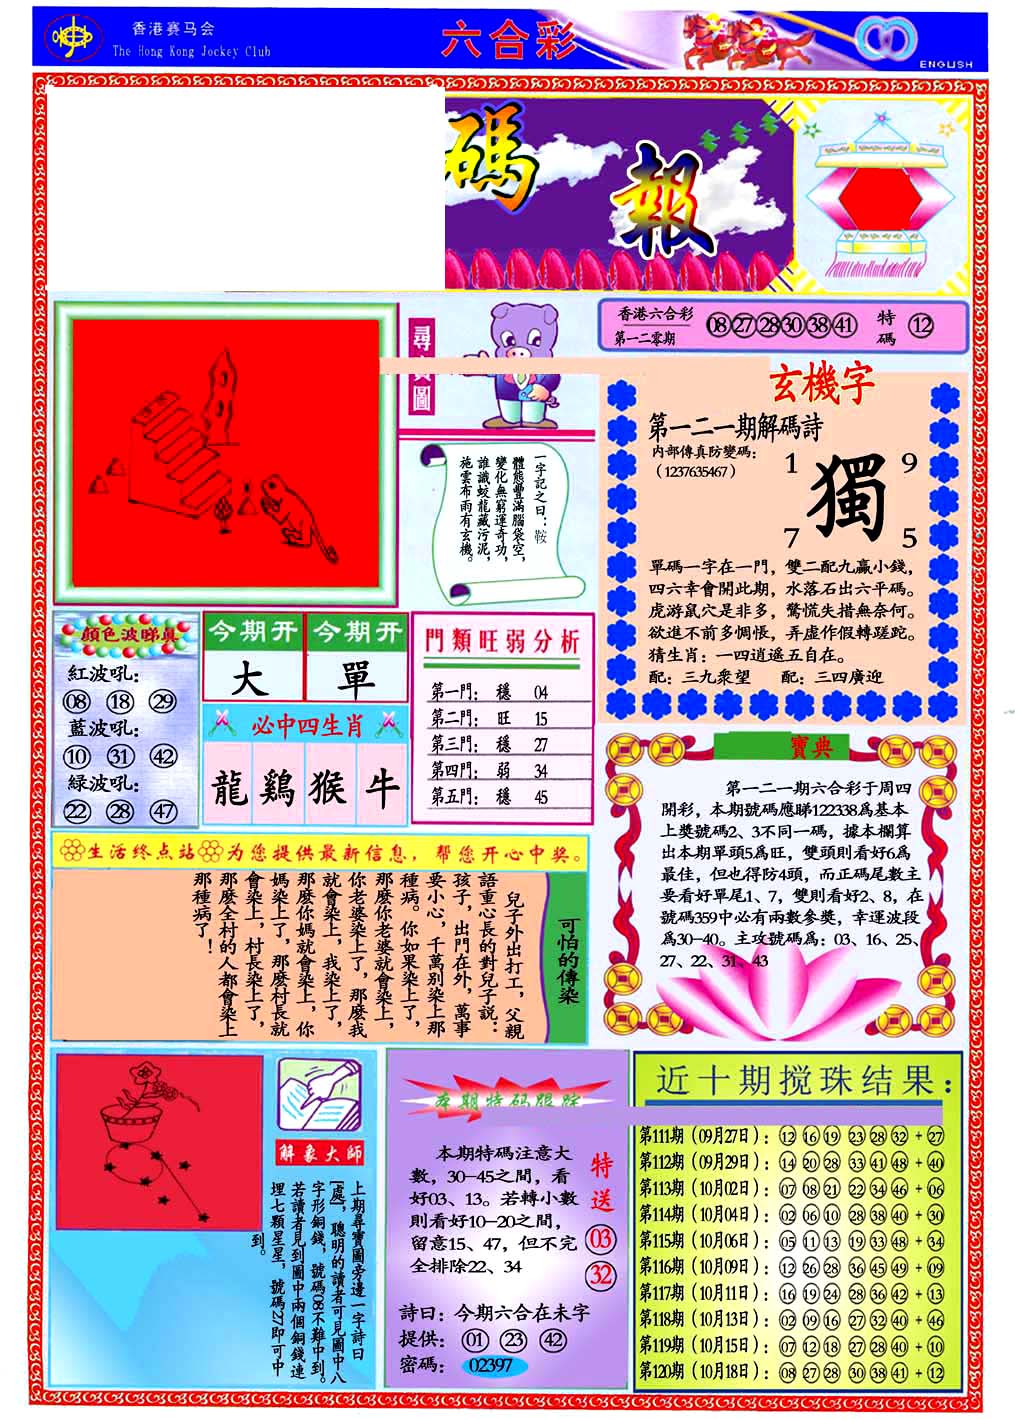 香港赛马会
The Hong Kong Jockey Club
六合彩
ENGLISH
碼報
香港六合彩
第一二零期
08 27 28 30 38 41
特碼
12
尋
圖
一字記之曰：鞍
體態豐滿腦袋空，
變化無窮運奇功，
誰識蛟龍藏污泥，
施雲布雨有玄機。
玄機字
第一二一期解碼詩
内部傳真防變碼：
（1237635467）
1 9
獨
7 5
單碼一字在一門，雙二配九贏小錢，
四六幸會開此期，水落石出六平碼。
虎游鼠穴是非多，驚慌失措無奈何。
欲進不前多惆悵，弄虛作假轉蹉跎。
猜生肖：一四逍遥五自在。
配：三九衆望 配：三四廣迎
顔色波睇真
紅波吼：
08 18 29
藍波吼：
10 31 42
緑波吼：
22 28 47
今期开 今期开
大 單
必中四生肖
龍 鷄 猴 牛
門類旺弱分析
第一門： 穩 04
第二門： 旺 15
第三門： 穩 27
第四門： 弱 34
第五門： 穩 45
寶典
第一二一期六合彩于周四
開彩，本期號碼應睇122338爲基本
上獎號碼2、3不同一碼，據本欄算
出本期單頭5爲旺，雙頭則看好6爲
最佳，但也得防4頭，而正碼尾數主
要看好單尾1、7，雙則看好2、8，在
號碼359中必有兩數參獎，幸運波段
爲30-40。主攻號碼爲：03、16、25、
27、22、31、43
生活终点站 为您提供最新信息，帮您开心中奖。
可怕的傳染
兒子外出打工，父親
語重心長的對兒子説：
孩子，出門在外，萬事
要小心，千萬别染上那
種病。你如果染上了，
那麽你老婆就會染上，
你老婆染上了，那麽我
就會染上，我染上了，
那麽你媽就會染上，你
媽染上了，那麽村長就
會染上，村長染上了，
那麽全村的人都會染上
那種病了！
解象大師
上期尋寶圖旁邊一字詩曰
[處]，聰明的讀者可見圖中八
字形銅錢，號碼08不難中到。
若讀者見到圖中兩個銅錢連
埋七顆星星，號碼27即可中
到。
本期特码跟踪
本期特碼注意大
數，30-45之間，看
好03、13。若轉小數
則看好10-20之間，
留意15、47，但不完
全排除22、34
特送
03
32
詩曰：今期六合在未字
提供： 01 23 42
密碼： 02397
近十期搅珠结果：
第111期（09月27日）：12 16 19 23 28 32 + 27
第112期（09月29日）：14 20 28 33 41 48 + 40
第113期（10月02日）：07 08 21 22 34 46 + 06
第114期（10月04日）：02 06 10 28 38 40 + 30
第115期（10月06日）：05 11 13 19 33 48 + 34
第116期（10月09日）：12 26 28 36 45 49 + 09
第117期（10月11日）：16 19 24 28 36 42 + 13
第118期（10月13日）：02 09 16 27 32 40 + 46
第119期（10月15日）：07 12 18 27 28 40 + 10
第120期（10月18日）：08 27 28 30 38 41 + 12